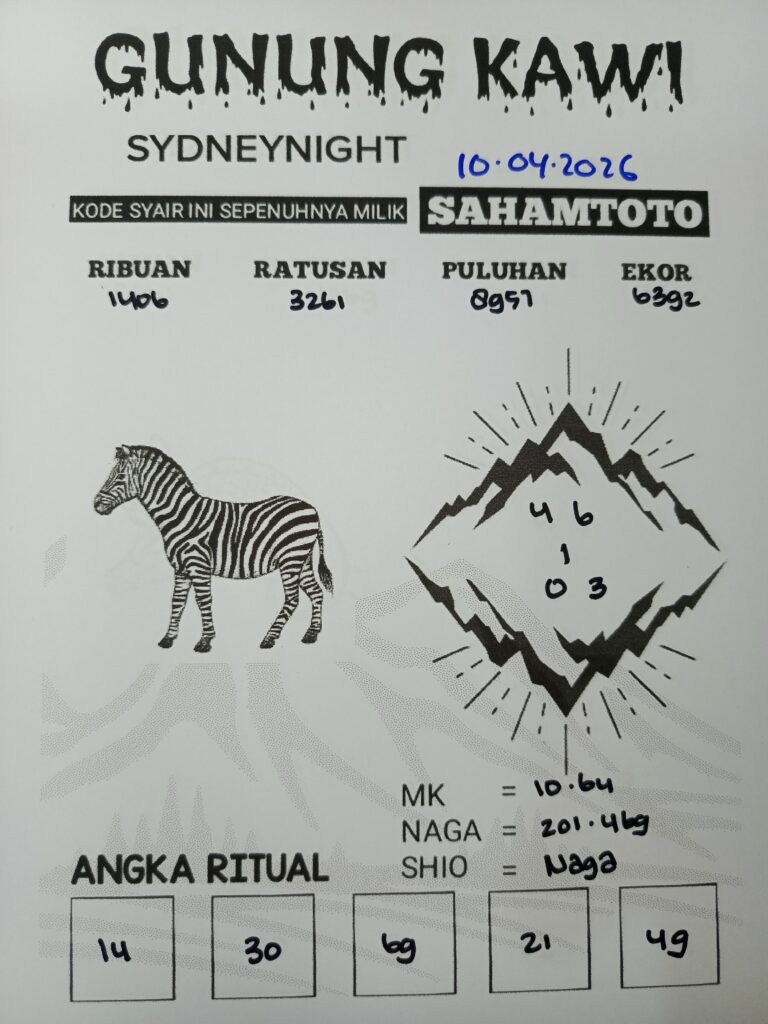 GUNUNG KAWI
SYDNEYNIGHT 10.04.2026
KODE SYAIR INI SEPENUHNYA MILIK SAHAMTOTO
RIBUAN RATUSAN PULUHAN EKOR
1406 3261 8957 6392
4 6
1
0 3
MK = 10.64
NAGA = 201.469
SHIO = Naga
ANGKA RITUAL
14 30 69 21 49